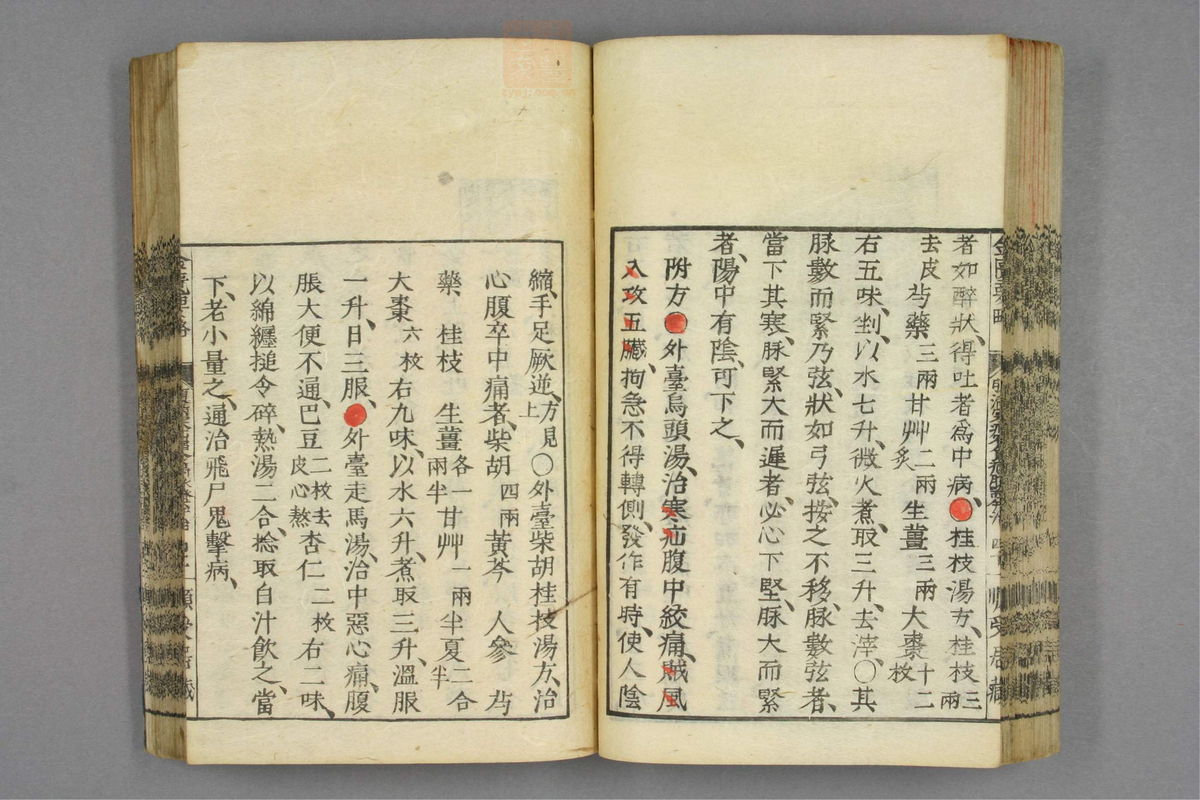 者如醉狀、得吐者爲中病、●桂枝湯方、桂枝三兩
去皮 芍藥三兩 甘艸二兩炙 生薑三兩 大棗十二枚
右五味、剉、以水七升、微火煮取三升、去滓、〇其
脉數而緊乃弦、狀如弓弦、按之不移、脉數弦者、
當下其寒、脉緊大而遲者、必心下堅、脉大而緊
者、陽中有陰、可下之、
附方●外臺烏頭湯、治寒疝腹中絞痛、賊風
入攻五臟、拘急不得轉側、發作有時、使人陰
縮、手足厥逆、方見上〇外臺柴胡桂枝湯方、治
心腹卒中痛者、柴胡四兩 黃芩 人參 芍
藥 桂枝 生薑各一兩半 甘艸一兩 半夏二合半
大棗六枚 右九味、以水六升、煮取三升、溫服
一升、日三服、●外臺走馬湯、治中惡心痛、腹
脹大便不通、巴豆二枚去皮心熬 杏仁二枚 右二味、
以綿纏搥令碎、熱湯二合、捻取白汁飮之、當
下、老小量之、通治飛尸鬼擊病、